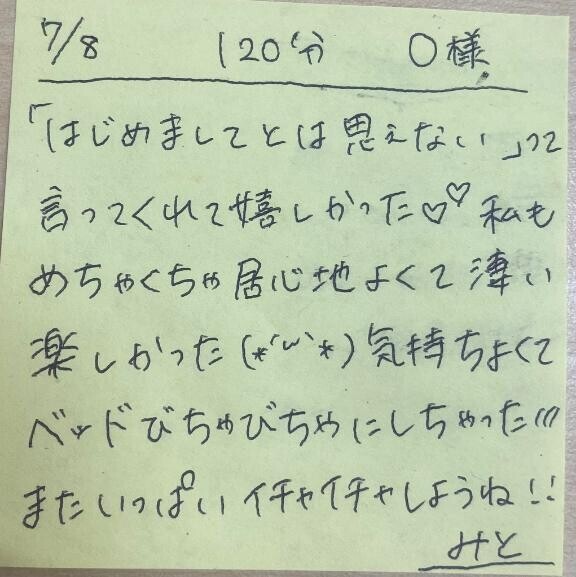 7/8 120分 O様
「はじめましてとは思えない」って
言ってくれて嬉しかった♡♡私も
めちゃくちゃ居心地よくて凄い
楽しかった(*´ω`*)気持ちよくて
ベッドびちゃびちゃにしちゃった///
またいっぱいイチャイチャしようね!!
みと